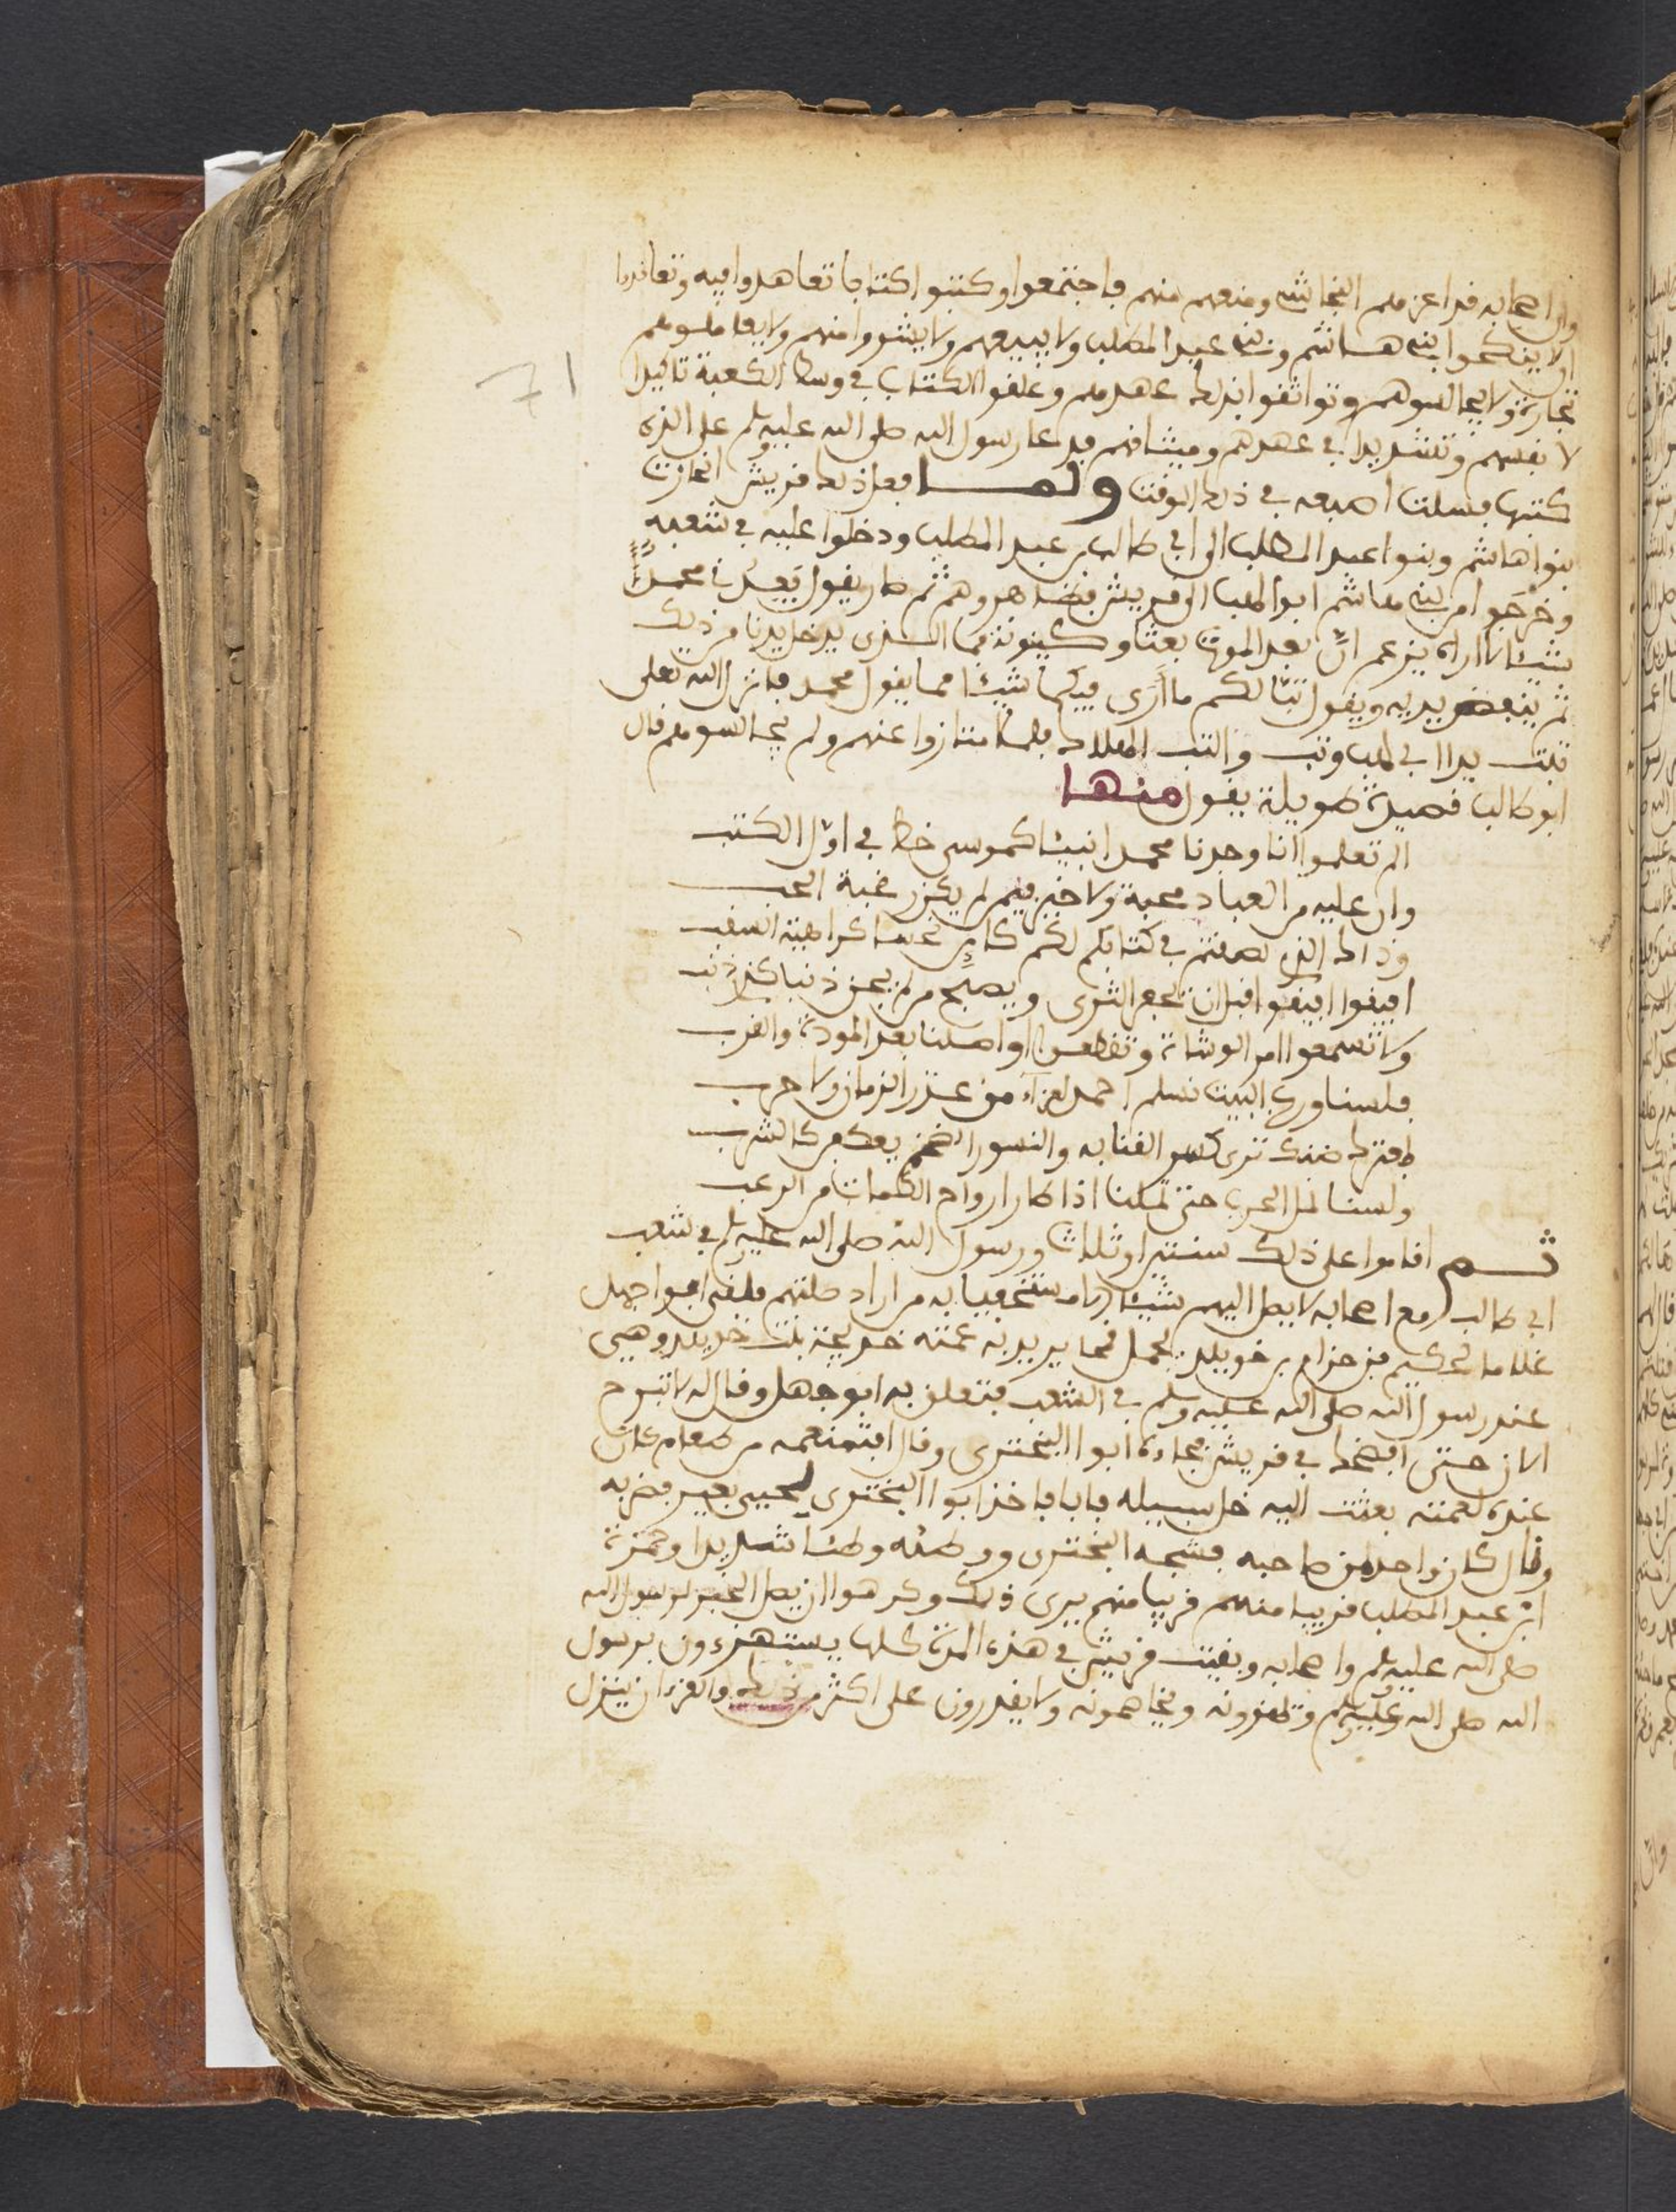 وان اصحابه قد اعزهم النجاشي ومنعهم منهم فاجتمعوا وكتبوا كتابا تعاهدوا فيه وتعاقدوا
ان لا ينكحوا بني هاشم وبني عبد المطلب ولا يبيعهم ولا يشتروا منهم ولا يعاملوهم
تجارة ولا يجالسوهم وتواثقوا بذلك عهدهم وعلقوا الكتاب في وسط الكعبة تاكيدا
71
لانفسهم وتشديدا في عهدهم وميثاقهم فدعا رسول الله صلى الله عليه وسلم على الذي
كتبها فشلت اصبعه في ذلك الوقت ولما فعل ذلك قريش انحازت
بنوا هاشم وبنوا عبد المطلب الى ابي طالب بن عبد المطلب ودخلوا عليه في شعبه
وخرجوا من بني هاشم ابو لهب الى قريش فظاهروهم ثم صار يقول يعدني محمد
شيئا لا اراه يزعم ان بعد الموت بعثا وكينونة فما الذي يدخل يدنا من ذلك
ثم ينفض يديه ويقول تبا لكم ما ارى فيكما شيئا مما يقول محمد فانزل الله تعلى
تبت يدا ابي لهب وتب والتب الهلاك فلما امتازوا عنهم ولم يجالسوهم قال
ابو طالب قصيدة طويلة يقول منها
الم تعلموا انا وجدنا محمدا نبيئا كموسى خط في اول الكتب
وان عليه من العباد محبة ولا خير فيمن لم يكن رغبة الحب
وذاك الذي لصقتم في كتابكم لكم كائن نحسا كراهية السقب
افيقوا افيقوا قبل ان يحفر الثرى ويصبح من لم يجن ذنبا كذي ذنب
ولا تسمعوا امر الوشاة وتقطعوا اواصلنا بعد المودة والقرب
فلسنا ورب البيت نسلم احمد لعزاء من عزر الزمان ولا حرب
بمعترك ضنك ترى كسر القنا به والنسور الضخم يعكفن كالشرب
ولسنا نمل الحرب حتى تملنا اذا كان ارواح الكمات من الرعب
ثم اقاموا على ذلك سنتين او ثلاث ورسول الله صلى الله عليه وسلم في شعب
ابي طالب مع اصحابه لا يصل اليهم شيئا الا مستخفيا به من اراد صلتهم فلقي ابوا جهل
غلاما لحكيم بن حزام بن خويلد يحمل قمحا يريد به عمته خديجة بنت خويلد وهي
عند رسول الله صلى الله عليه وسلم في الشعب فتعلق به ابو جهل وقال له لا تبرح
الان حتى افضحك في قريش فجاءه ابوا البختري وقال اتمنعه من طعام كان
عنده لعمته بعثت اليه خل سبيله فابا فاخذ ابوا البختري لحيي بعير فضربه
وقال كل واحد من صاحبه فشجه البختري ووطئه وطئا شديدا وحمزة
ابن عبد المطلب قريبا منهم قريبا منهم يرى ذلك وكرهوا ان يصل الخبر لرسول الله
صلى الله عليه وسلم واصحابه وبقيت قريش في هذه المدة كلها يستهزءون برسول
الله صلى الله عليه وسلم وتلمزونه ويخاصمونه ولا يقدرون على اكثر من ذلك والقرءان ينزل